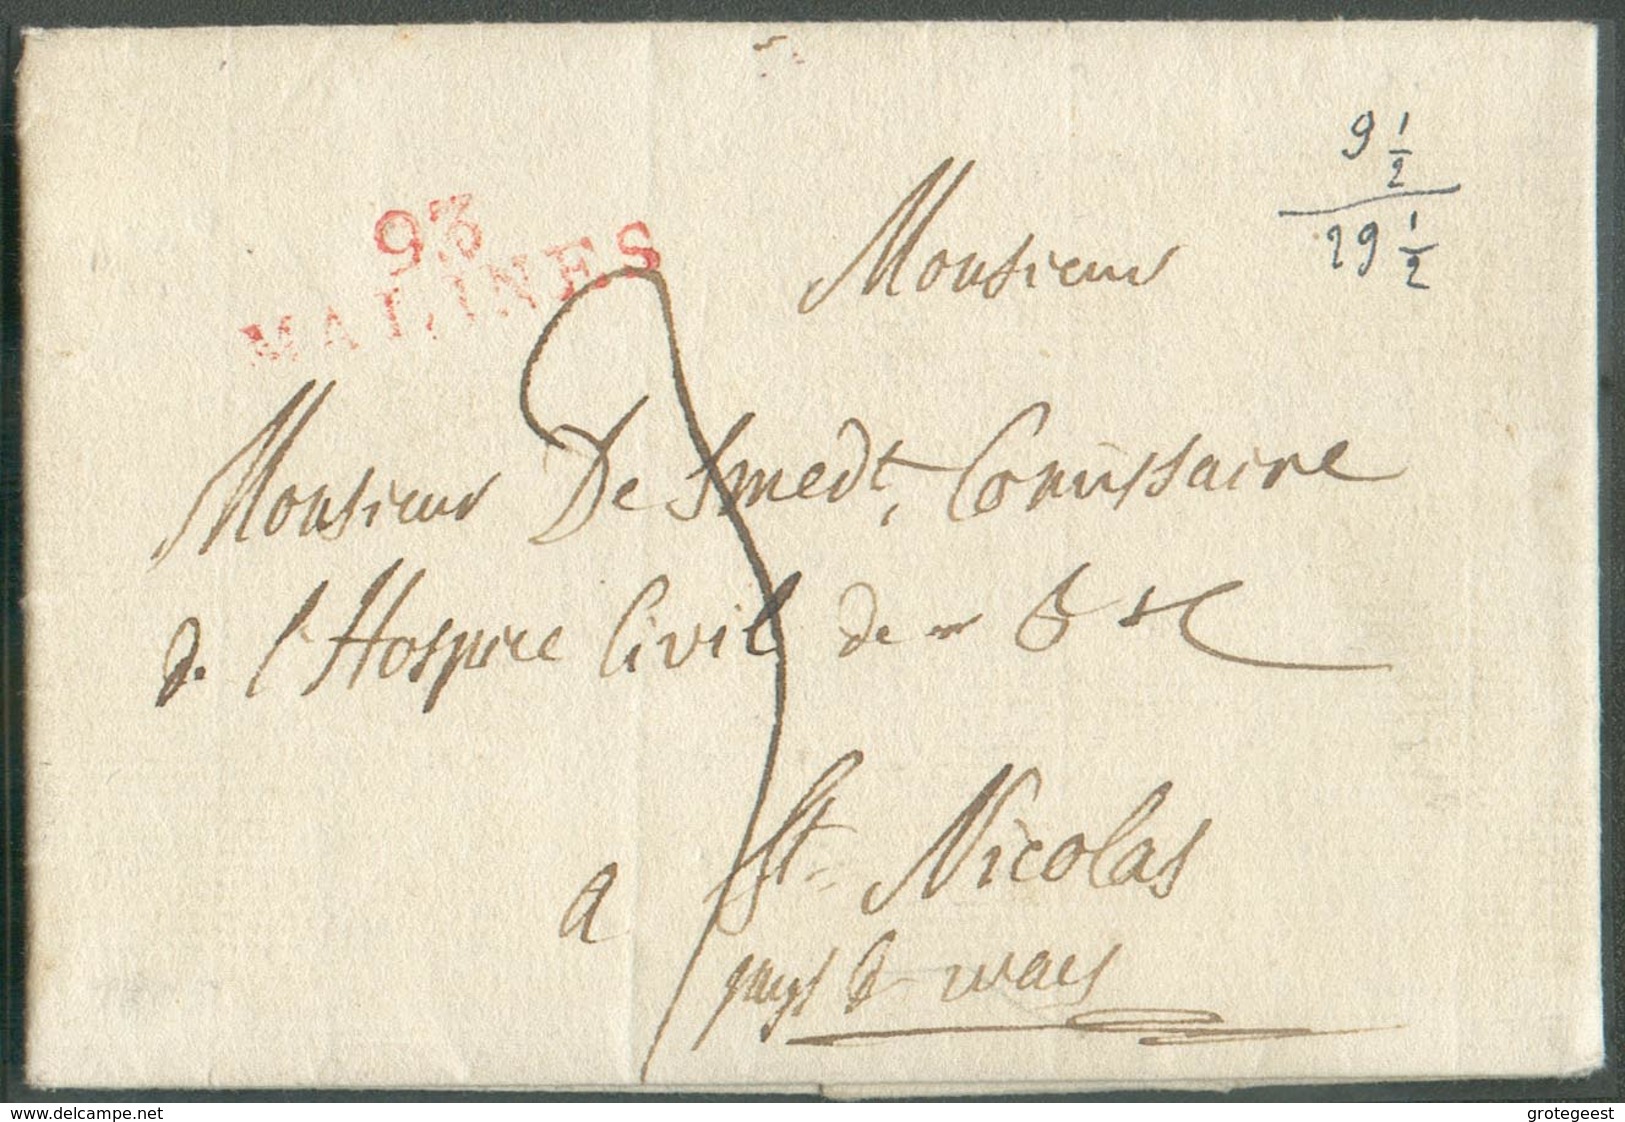 93
MALINES
9 1/2
29 1/2
Monsieur
Monsieur De Smedt, Comissaire
d. l'Hospice Civil de &c
a St. Nicolas
pays de waes
www.delcampe.net
grotegeest